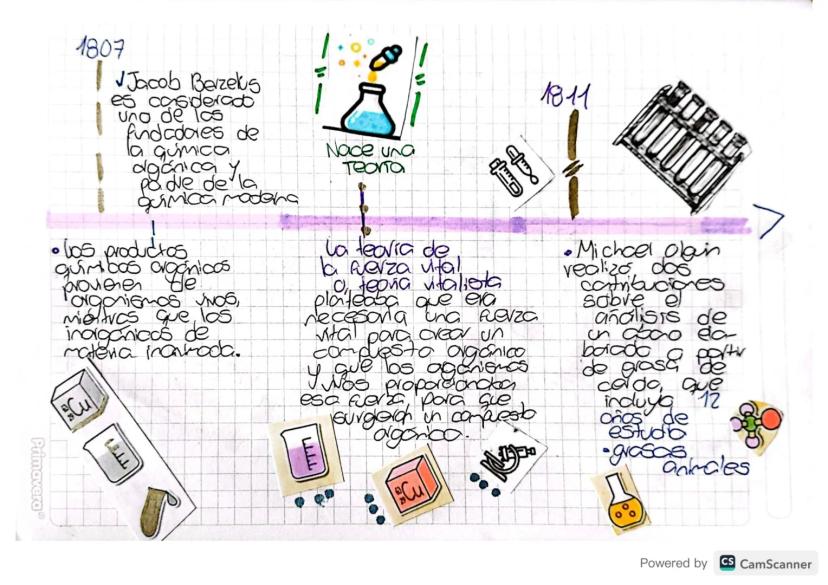 1807
✓Jacob Berzelius
es considerado
uno de los
fundadores de
la química
orgánica y
padre de la
química moderna
• los productos
químicos orgánicos
provienen de
organismos vivos,
mientras que los
inorgánicos de
materia inanimada.
Nace una
Teoría
la teoría de
la fuerza vital
o, teoría vitalista
planteaba que era
necesaria una fuerza
vital para crear un
compuesto orgánico
y que los organismos
vivos proporcionaban
esa fuerza, para que
surgieran un compuesto
orgánico.
1811
• Michael
realizó dos
contribuciones
sobre el
análisis de
un
borado a partir
de grasa de
cerdo, que
incluyó 12
años de
estudio
•grasas
animales
Cu
Cu
Primavera
Powered by CS CamScanner